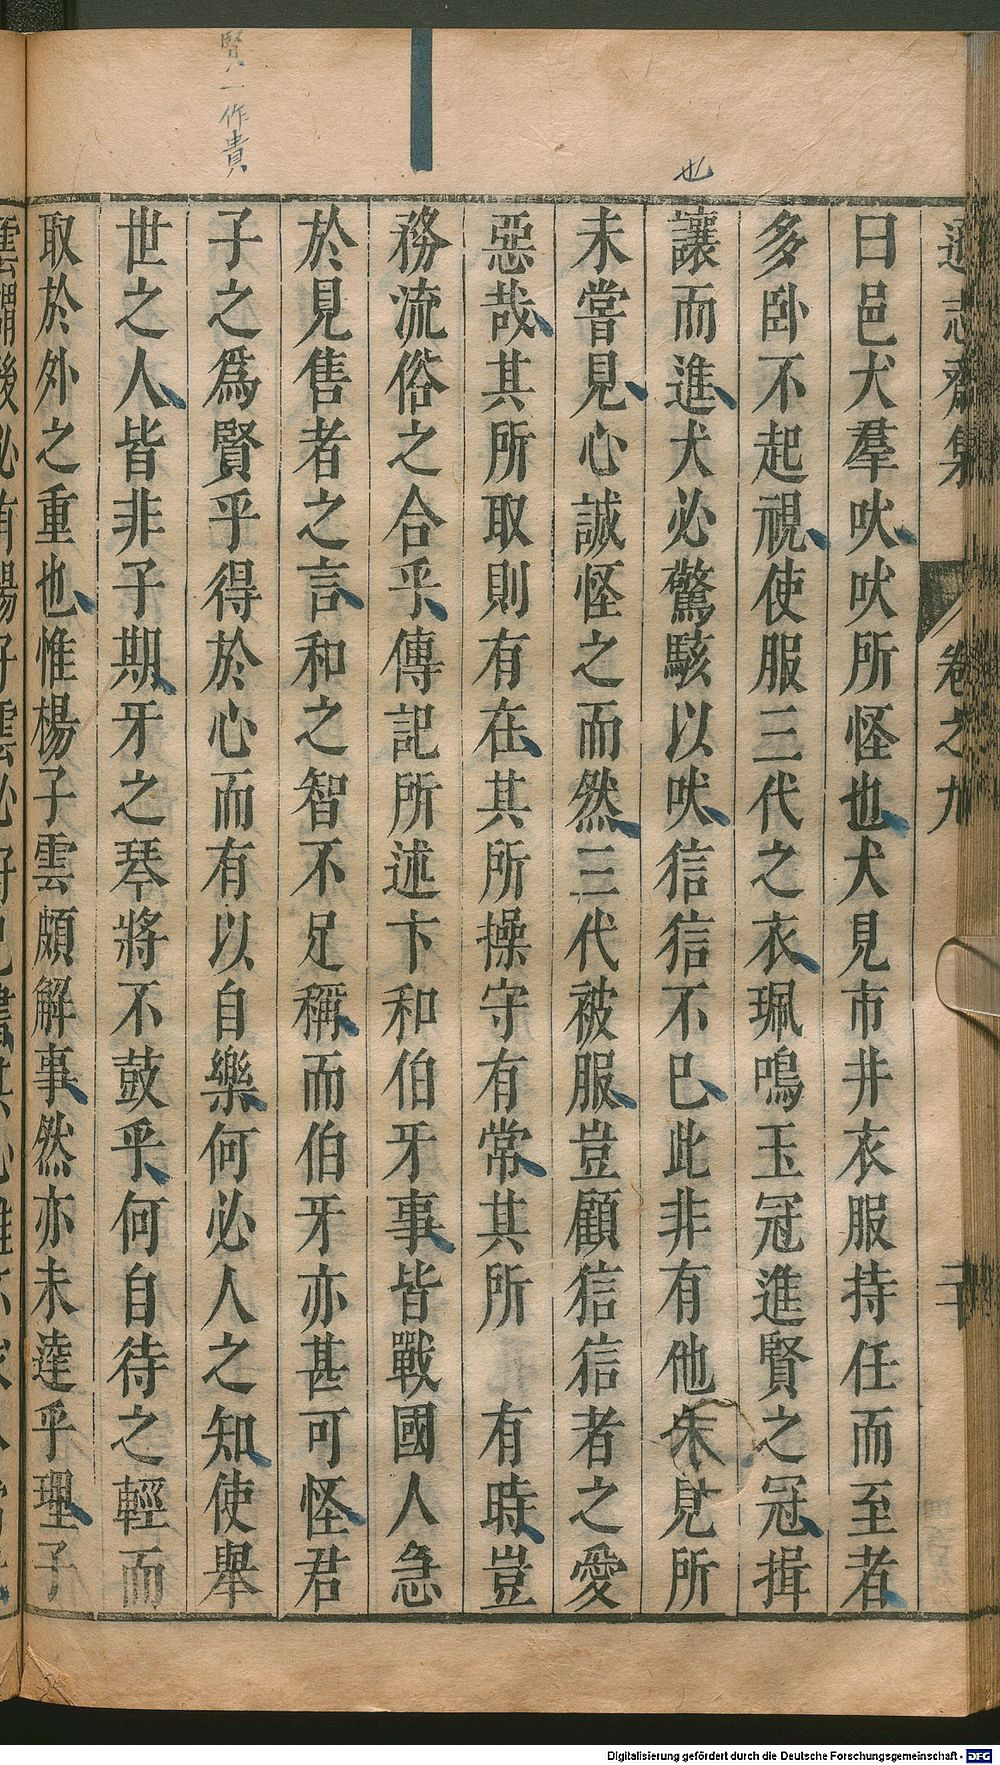 遜志齋集
卷之九
二十
曰邑犬羣吠吠所怪也犬見市井衣服持任而至者
多卧不起視使服三代之衣珮鳴玉冠進賢之冠揖
讓而進犬必驚駭以吠信信不已此非有他朱見所
未嘗見心誠怪之而然三代被服豈顧信信者之愛
惡哉其所取則有在其所操守有常其所 有時豈
務流俗之合乎傳記所述卞和伯牙事皆戰國人急
於見售者之言和之智不足稱而伯牙亦甚可怪君
子之爲賢乎得於心而有以自樂何必人之知使舉
世之人皆非子期牙之琴將不鼓乎何自待之輕而
取於外之重也惟楊子雲頗解事然亦未達乎理子
雲謂後必有揚子雲必好
也
賢一作貴
Digitalisierung gefördert durch die Deutsche Forschungsgemeinschaft - DFG